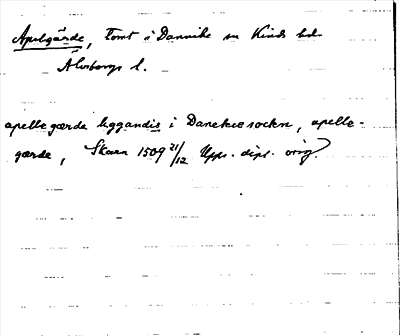 Apelgärde, Tomt i Dannike sn Kinds hd
Älvsborgs l.
apelle gærde liggandis i Danekes sockn, apelle-
gærde, Skara 1509 21/12 Upps. dipl. orig.